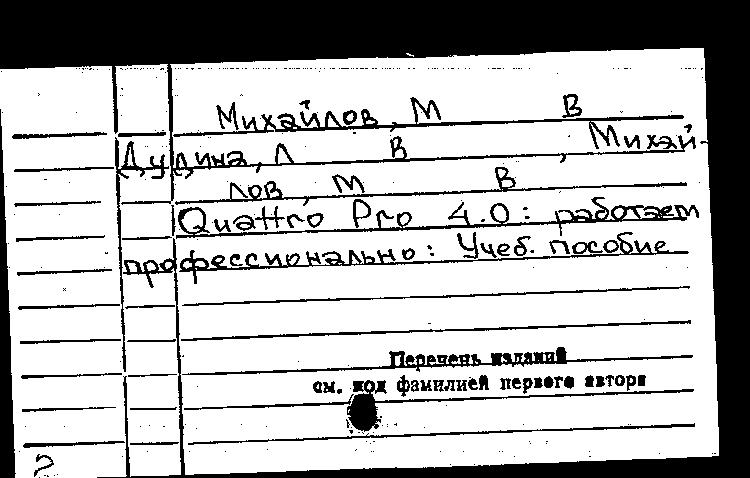 Михайлов, М В
Дудина, Л В , Михай-
лов, М В
Quattro Pro 4.0: работаем
профессионально: Учеб. пособие
Перечень изданий
см. под фамилией первого автора